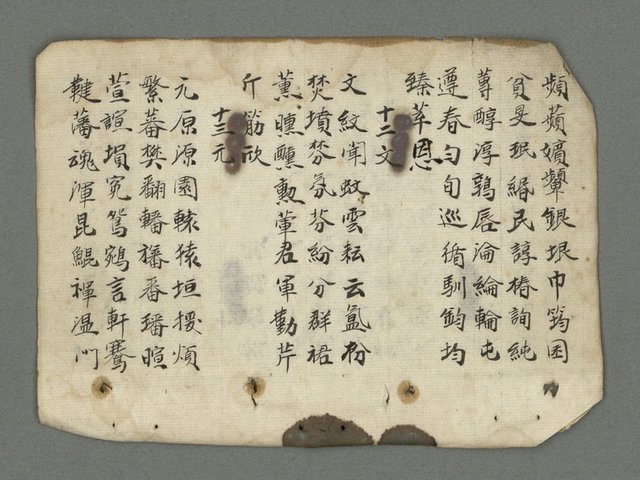 頻蘋嬪顰銀垠巾筠囷
貧旻珉緡民諄椿詢純
蓴醇淳鶉唇淪綸輪屯
遵春勻旬巡循馴鈞均
臻莘恩
十二文
文紋聞蚊雲耘云氳枌
焚墳棼氛芬紛分群裙
薰曛醺勲葷君軍勤芹
斤筋欣
十三元
元原源園轅猿垣援煩
繁蕃樊翻轓旛番璠暄
萱諠塤冤鴛鵷言軒騫
鞬藩魂渾昆鯤褌温門